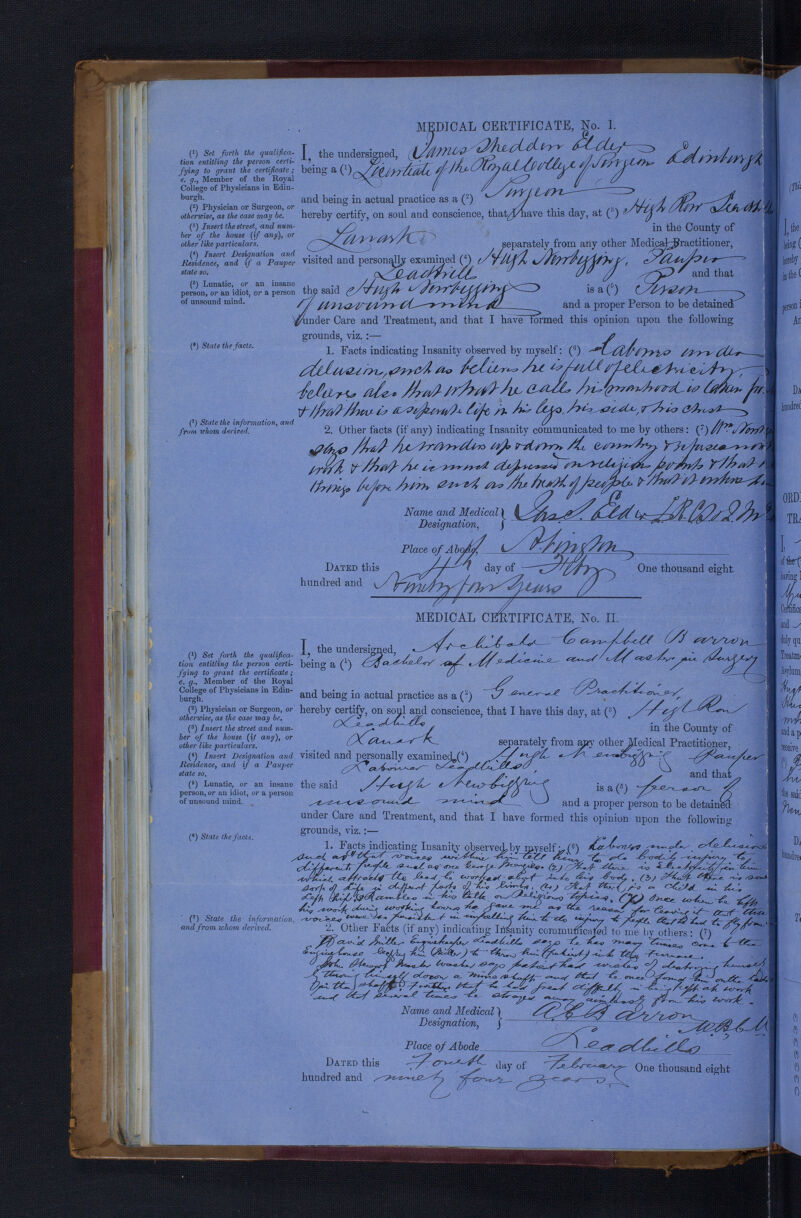 MEDICAL CERTIFICATE, No. I.
(¹) Set forth the qualifica-
tion entitling the person certi-
fying to grant the certificate;
e. g., Member of the Royal
College of Physicians in Edin-
burgh.
(²) Physician or Surgeon, or
otherwise, as the case may be.
(³) Insert the street, and num-
ber of the house (if any), or
other like particulars.
(⁴) Insert Designation and
Residence, and if a Pauper
state so.
(⁵) Lunatic, or an insane
person, or an idiot, or a person
of unsound mind.
(⁶) State the facts.
(⁷) State the information, and
from whom derived.
I, the undersigned, James Shedden Elder
being a (¹) Licentiate of the Royal College of Surgeons Edinburgh
and being in actual practice as a (²) Surgeon
hereby certify, on soul and conscience, that I have this day, at (³) High Row
in the County of
Lanark separately from any other Medical Practitioner,
visited and personally examined (⁴) Hugh Newbigging, Pauper
Leadhills and that
the said Hugh Newbigging is a (⁵) Person
of unsound mind and a proper Person to be detained
under Care and Treatment, and that I have formed this opinion upon the following
grounds, viz. :—
1. Facts indicating Insanity observed by myself: (⁶) Labours under
delusions, such as believes he is full of electricity,
believes also that what he calls his manhood is taken
& that there is a separate life in his legs, his side, & his chest
2. Other facts (if any) indicating Insanity communicated to me by others: (⁷) Wm
says that he wanders up & down the country & refuses
work & that he is much depressed on religious points & that
things before him such as the death of people & that
Name and Medical Designation, Jas S. Elder
Place of Abode, Abington
DATED this 4th day of Feby One thousand eight
hundred and Ninety four years
MEDICAL CERTIFICATE, No. II.
(¹) Set forth the qualifica-
tion entitling the person certi-
fying to grant the certificate;
e. g., Member of the Royal
College of Physicians in Edin-
burgh.
(²) Physician or Surgeon, or
otherwise, as the case may be.
(³) Insert the street and num-
ber of the house (if any), or
other like particulars.
(⁴) Insert Designation and
Residence, and if a Pauper
state so,
(⁵) Lunatic, or an insane
person, or an idiot, or a person
of unsound mind.
(⁶) State the facts.
(⁷) State the information,
and from whom derived.
I, the undersigned, Archibald Campbell Barron
being a (¹) Bachelor of Medicine and Master in Surgery
and being in actual practice as a (²) General Practitioner
hereby certify, on soul and conscience, that I have this day, at (³) High Row
Leadhills in the County of
Lanark separately from any other Medical Practitioner,
visited and personally examined (⁴) Hugh Newbigging Pauper
Labourer Leadhills and that
the said Hugh Newbigging is a (⁵) person of
unsound mind and a proper person to be detained
under Care and Treatment, and that I have formed this opinion upon the following
grounds, viz. :—
1. Facts indicating Insanity observed by myself: (⁶) Labours under delusions
such as (1) that voices within him tell him to do bodily injury to
different people such as one (2) That there is electricity in him
which affects the lead he worked in his body, (3) That there is some
sort of life in different parts of his limbs, (4) That there is a child in his
left hip. Rambles in his talk on Religious topics. Once when he left
his work during working hours he gave me as the reason for leaving it that these
voices were so persistent in impelling him to do injury to people that he had to fly from
2. Other Facts (if any) indicating Insanity communicated to me by others: (⁷)
David Miller Enginekeeper Leadhills says he has many times come to the
engine house (Miller) to throw him (patient) into the furnace.
John washer says patient has wishes of destroying himself
by throwing himself down a mine shaft and that he once
Further that he had great difficulty in being kept at work
and that several times he strays away aimlessly from his work.
Name and Medical Designation, A. C. Barron
Place of Abode Leadhills
DATED this Fourth day of February One thousand eight
hundred and ninety four years